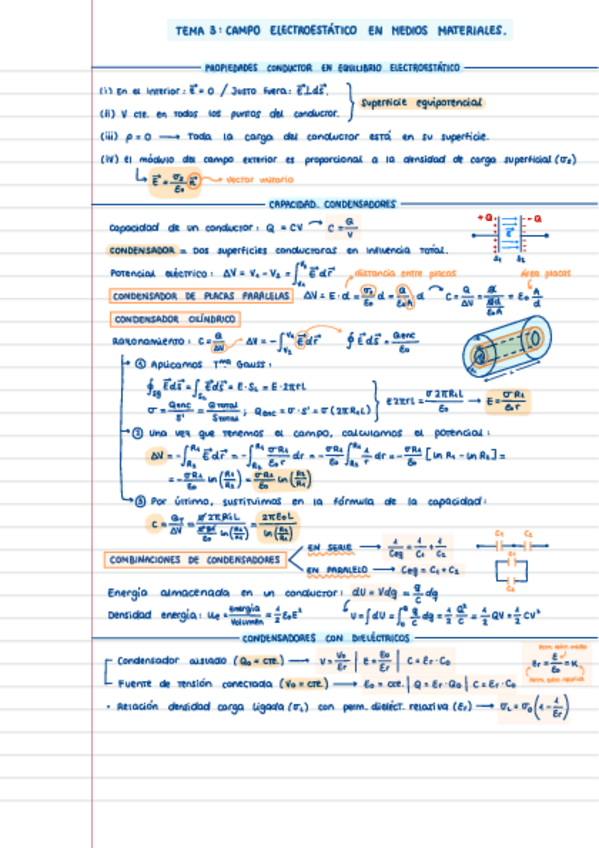 TEMA 3: CAMPO ELECTROESTÁTICO EN MEDIOS MATERIALES.
PROPIEDADES CONDUCTOR EN EQUILIBRIO ELECTROESTÁTICO
(i) En el interior: E⃗ = 0 / Justo fuera: E⃗ ⊥ dS⃗.
(ii) V cte. en todos los puntos del conductor.
Superficie equipotencial
(iii) ρ = 0 → Toda la carga del conductor está en su superficie.
(iv) El módulo del campo exterior es proporcional a la densidad de carga superficial (σs)
E⃗ = σs/ε₀ n⃗ → vector unitario
CAPACIDAD. CONDENSADORES
Capacidad de un conductor: Q = CV → C = Q/V
+Q E⃗ -Q
S₁ S₂
CONDENSADOR = Dos superficies conductoras en influencia total.
Potencial eléctrico: ΔV = V₁ - V₂ = ∫ E⃗ dr⃗
distancia entre placas
área placas
CONDENSADOR DE PLACAS PARALELAS ΔV = E · d = σs/ε₀ d = Q/ε₀A d → C = Q/ΔV = Q/(Qd/ε₀A) = ε₀ A/d
CONDENSADOR CILÍNDRICO
Razonamiento: C = Q/ΔV → ΔV = -∫ E⃗ dr⃗ ∮ E⃗ dS⃗ = Qenc/ε₀
① Aplicamos Tma Gauss:
∮ E⃗ dS⃗ = ∫ E⃗ dS⃗ = E · SL = E · 2πrL
σ = Qenc/S' = Qtotal/Stotal ; Qenc = σ · S' = σ (2πR₁L)
E2πrL = σ2πR₁L/ε₀ → E = σR₁/ε₀r
② Una vez que tenemos el campo, calculamos el potencial:
ΔV = -∫ E⃗ dr⃗ = -∫ σR₁/ε₀r dr = -σR₁/ε₀ ∫ 1/r dr = -σR₁/ε₀ [ln R₁ - ln R₂] =
= -σR₁/ε₀ ln (R₁/R₂) = σR₁/ε₀ ln (R₂/R₁)
③ Por último, sustituimos en la fórmula de la capacidad:
C = QT/ΔV = σ2πR₁L/(σR₁/ε₀ ln (R₂/R₁)) = 2πε₀L/ln (R₂/R₁)
COMBINACIONES DE CONDENSADORES
EN SERIE → 1/Ceq = 1/C₁ + 1/C₂
EN PARALELO → Ceq = C₁ + C₂
C₁ C₂
C₁
C₂
Energía almacenada en un conductor: dU = Vdq = q/C dq
Densidad energía: uE = Energía/Volumen = 1/2 ε₀E² U = ∫dU = ∫ q/C dq = 1/2 Q²/C = 1/2 QV = 1/2 CV²
CONDENSADORES CON DIELÉCTRICOS
Condensador aislado (Q₀ = cte.) → V = V₀/εr | E = E₀/εr | C = εr · C₀
εr = ε/ε₀ = K
Fuente de tensión conectada (V₀ = cte.) → E₀ = cte. | Q = εr · Q₀ | C = εr · C₀
· Relación densidad carga ligada (σL) con perm. dieléct. relativa (εr) → σL = σ₀ (1 - 1/εr)